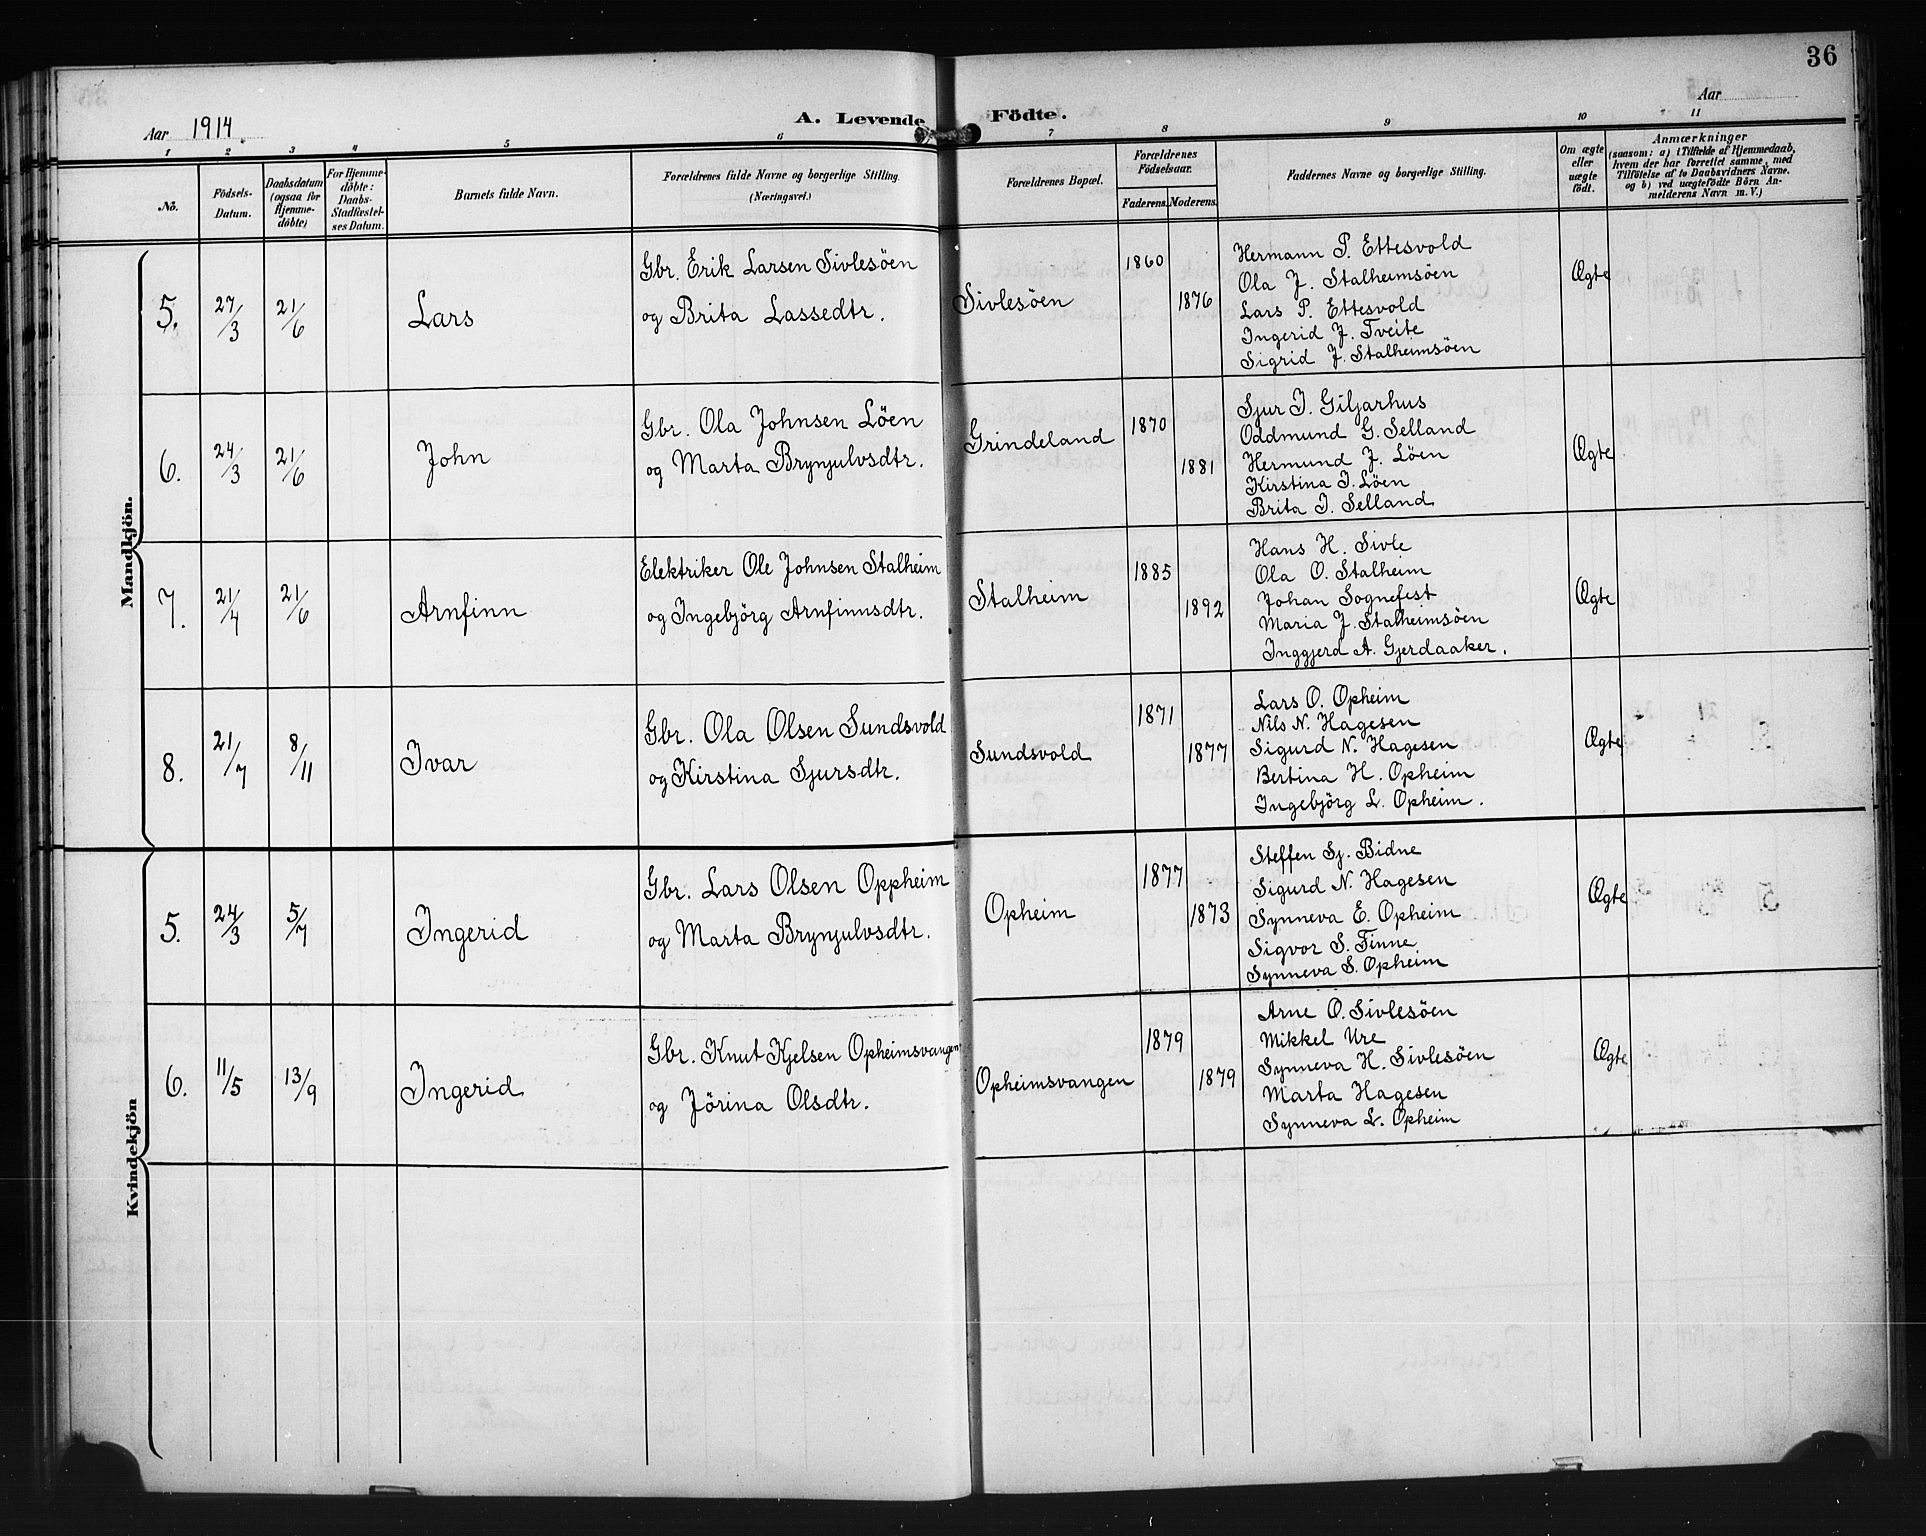 36
Aar 1914
A. Levende Födte.
Aar
1 2 3 4 5 6 7 8 9 10 11
No.
Födsels-
Datum.
Daabsdatum
(ogsaa for
Hjemme-
döbte)
For Hjemme-
döbte:
Daabs-
Stadfæstel-
ses Datum.
Barnets fulde Navn.
Forældrenes fulde Navne og borgerlige Stilling.
(Næringsvei.)
Forældrenes Bopæl.
Forældrenes
Födselsaar.
Faderens. Moderens.
Faddernes Navne og borgerlige Stilling.
Om ægte
eller
uægte
födt.
Anmærkninger
(saasom: a) i Tilfælde af Hjemmedaab,
hvem der har forrettet samme, med
Tilföielse af to Daabsvidners Navne.
og b) ved uægtefödte Börn An-
melderens Navn m. V.)
Mandkjön.
5. 27/3 21/6 Lars
Gbr. Erik Larsen Sivlesöen
og Brita Lassedtr.
Sivlesöen
1860
1876
Hermann P. Ettesvold
Ola J. Stalheimsöen
Lars P. Ettesvold
Ingerid J. Tveite
Sigrid J. Stalheimsöen
Ægte
6. 24/3 21/6 John
Gbr. Ola Johnsen Löen
og Marta Brynjulvsdtr.
Grindeland
1870
1881
Sjur I. Giljarhus
Oddmund G. Selland
Hermund J. Löen
Kirstina I. Löen
Brita I. Selland
Ægte
7. 21/4 21/6 Arnfinn
Elektriker Ole Johnsen Stalheim
og Ingebjörg Arnfinnsdtr.
Stalheim
1885
1892
Hans H. Sivle
Ola O. Stalheim
Johan Sognefest
Maria J. Stalheimsöen
Inggjerd A. Gjerdaaker.
Ægte
8. 21/7 8/11 Ivar
Gbr. Ola Olsen Sundsvold
og Kirstina Sjursdtr.
Sundsvold
1871
1877
Lars O. Opheim
Nils N. Hagesen
Sigurd N. Hagesen
Bertina H. Opheim
Ingebjörg L. Opheim.
Ægte
Kvindekjön
5. 24/3 5/7 Ingerid
Gbr. Lars Olsen Oppheim
og Marta Brynjulvsdtr.
Opheim
1877
1873
Steffen Sj. Bidne
Sigurd N. Hagesen
Synneva E. Opheim
Sigvor S. Finne
Synneva S. Opheim
Ægte
6. 11/5 13/9 Ingerid
Gbr. Knut Kjelsen Opheimsvangen
og Jörina Olsdtr.
Opheimsvangen
1879
1879
Arne O. Sivlesöen
Mikkel Ure
Synneva H. Sivlesöen
Marta Hagesen
Synneva L. Opheim
Ægte